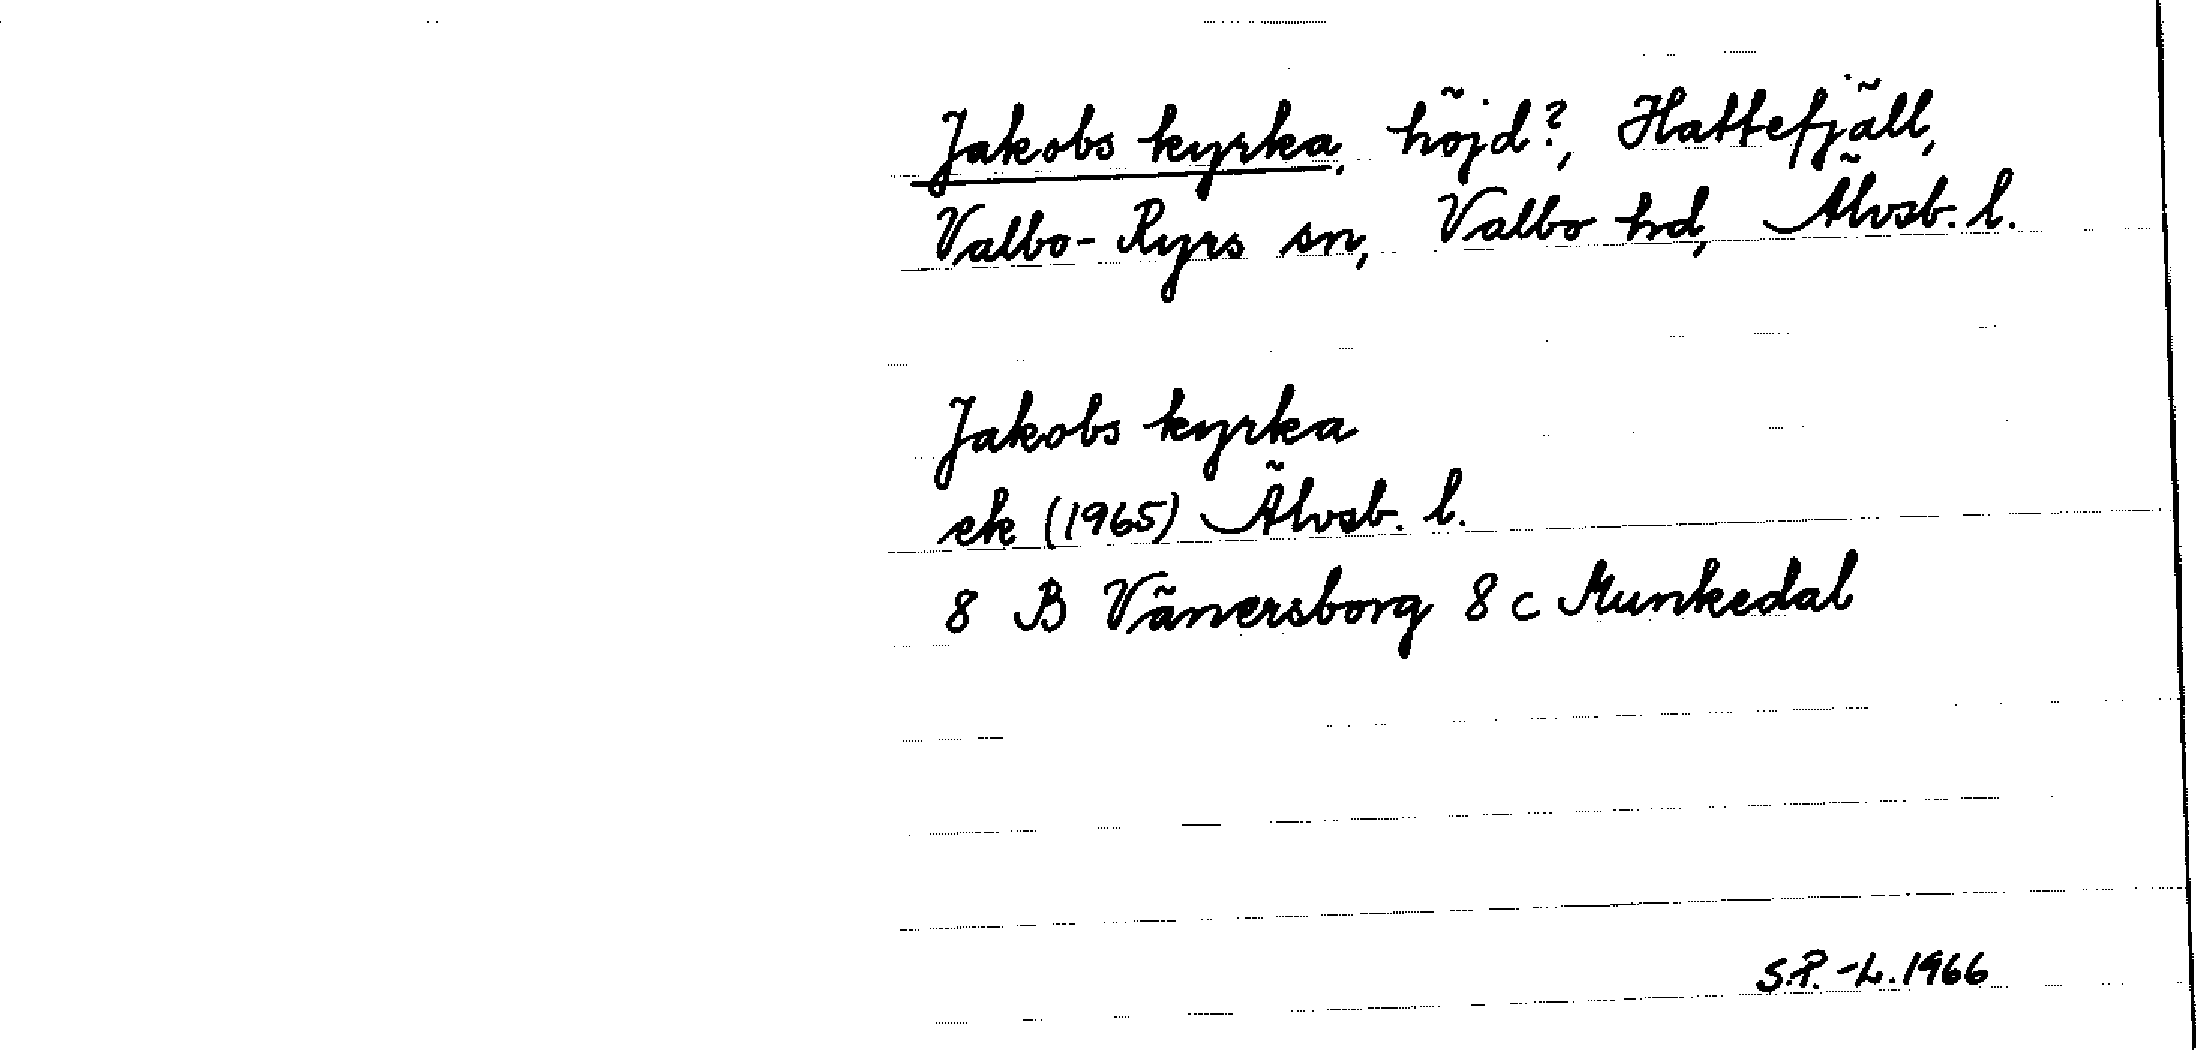 Jakobs kyrka, höjd?, Hattefjäll,
Valbo-Ryrs sn, Valbo hd, Älvsb. l.
Jakobs kyrka
ek (1965) Älvsb. l.
8 B Vänersborg 8 c Munkedal
S.P.-L. 1966